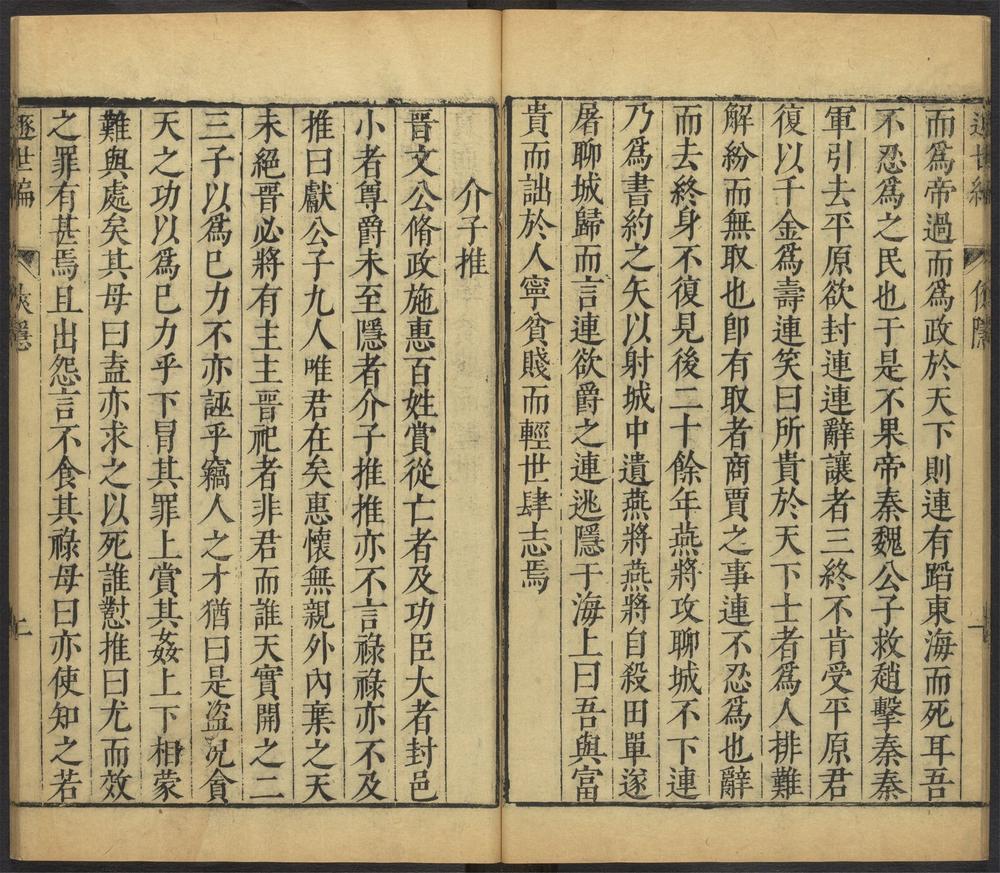 而爲帝過而爲政於天下則連有蹈東海而死耳吾
不忍爲之民也于是不果帝秦魏公子救趙擊秦秦
軍引去平原欲封連連辭讓者三終不肯受平原君
復以千金爲壽連笑曰所貴於天下士者爲人排難
解紛而無取也即有取者商賈之事連不忍爲也辭
而去終身不復見後二十餘年燕將攻聊城不下連
乃爲書約之矢以射城中遺燕將燕將自殺田單遂
屠聊城歸而言連欲爵之連逃隱于海上曰吾與富
貴而詘於人寧貧賤而輕世肆志焉
介子推
晉文公脩政施惠百姓賞從亡者及功臣大者封邑
小者尊爵未至隱者介子推推亦不言祿祿亦不及
推曰獻公子九人唯君在矣惠懷無親外內棄之天
未絕晉必將有主主晉祀者非君而誰天實開之二
三子以爲已力不亦誣乎竊人之才猶曰是盜況貪
天之功以爲已力乎下冒其罪上賞其姦上下相蒙
難與處矣其母曰盍亦求之以死誰懟推曰尤而效
之罪有甚焉且出怨言不食其祿母曰亦使知之若